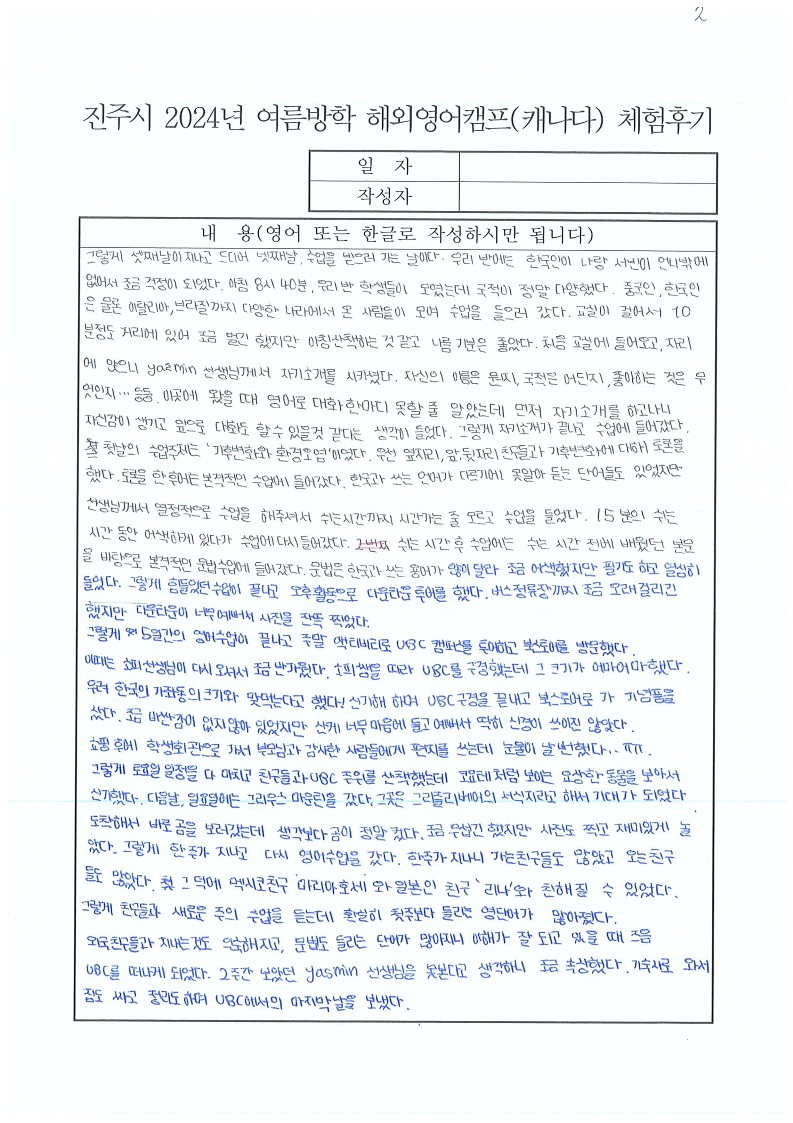 2
진주시 2024년 여름방학 해외영어캠프(캐나다) 체험후기
일 자
작성자
내 용(영어 또는 한글로 작성하시만 됩니다)
그렇게 셋째날이 지나고 드디어 넷째날, 수업을 받으러 가는 날이다. 우리 반에는 한국인이 나랑 서빈이 언니밖에
없어서 조금 걱정이 되었다. 아침 8시 40분, 우리 반 학생들이 모였는데 국적이 정말 다양했다. 중국인, 한국인
은 물론 이탈리아, 브라질까지 다양한 나라에서 온 사람들이 모여 수업을 들으러 갔다. 교실이 걸어서 10
분정도 거리에 있어 조금 멀긴 했지만 아침산책하는 것 같고 나름 기분은 좋았다. 처음 교실에 들어오고, 자리
에 앉으니 yasmin 선생님께서 자기소개를 시키셨다. 자신의 이름은 뭔지, 국적은 어딘지, 좋아하는 것은 무
엇인지... 등등. 이곳에 왔을 때 영어로 대화 한마디 못할 줄 알았는데 먼저 자기소개를 하고나니
자신감이 생기고 앞으로 대화도 할 수 있을것 같다는 생각이 들었다. 그렇게 자기소개가 끝나고 수업에 들어갔다.
첫날의 수업주제는 '기후변화와 환경오염'이었다. 우선 옆자리, 앞, 뒷자리 친구들과 기후변화에 대해 토론을
했다. 토론을 한 후에는 본격적인 수업에 들어갔다. 한국과 쓰는 언어가 다르기에 못알아 듣는 단어들도 있었지만
선생님께서 열정적으로 수업을 해주셔서 쉬는시간까지 시간가는 줄 모르고 수업을 들었다. 15분의 쉬는
시간 동안 어색하게 있다가 수업에 다시 들어갔다. 쉬는 시간 후 수업에는 쉬는 시간 전에 배웠던 본문
을 바탕으로 본격적인 문법수업에 들어갔다. 문법은 한국과 쓰는 용어가 많이 달라 조금 어색했지만 필기도 하고 열심히
들었다. 그렇게 힘들었던 수업이 끝나고 오후활동으로 다운타운 투어를 했다. 버스정류장까지 조금 오래걸리긴
했지만 다운타운이 너무예뻐서 사진을 잔뜩 찍었다.
그렇게 5일간의 영어수업이 끝나고 주말 액티비티로 UBC 캠퍼스를 투어하고 북스토어를 방문했다.
이때는 소피선생님이 다시 오셔서 조금 반가웠다. 소피쌤을 따라 UBC를 구경했는데 그 크기가 어마어마했다.
우리 한국의 가좌동의 크기와 맞먹는다고 했다! 신기해 하며 UBC구경을 끝내고 북스토어로 가 기념품을
샀다. 조금 비싼감이 없지않아 있었지만 산게 너무 마음에 들고 예뻐서 딱히 신경이 쓰이진 않았다.
쇼핑 후에 학생회관으로 가서 부모님과 감사한 사람들에게 편지를 쓰는데 눈물이 날 뻔했다.. ㅠㅠ.
그렇게 토요일 일정을 다 마치고 친구들과 UBC 주위를 산책했는데 코요테처럼 보이는 요상한 동물을 보아서
신기했다. 다음날, 일요일에는 그라우스 마운틴을 갔다. 그곳은 그리즐리베어의 서식지라고 해서 기대가 되었다
도착해서 바로 곰을 보러갔는데 생각보다 곰이 정말 컸다. 조금 무섭긴 했지만 사진도 찍고 재미있게 놀
았다. 그렇게 한주가 지나고 다시 영어수업을 갔다. 한주가 지나니 가는친구들도 많았고 오는친구
들도 많았다. 그 덕에 멕시코친구 '마리아호세'와 일본인 친구 '리나'와 친해질 수 있었다.
그렇게 친구들과 새로운 주의 수업을 듣는데 확실히 첫주보다 들리는 영단어가 많아졌다.
외국친구들과 지내는것도 익숙해지고, 문법도 들리는 단어가 많아지니 이해가 잘 되고 있을 때 즈음
UBC를 떠나게 되었다. 2주간 보았던 yasmin 선생님을 못본다고 생각하니 조금 속상했다. 기숙사로 와서
짐도 싸고 정리도하며 UBC에서의 마지막날을 보냈다.